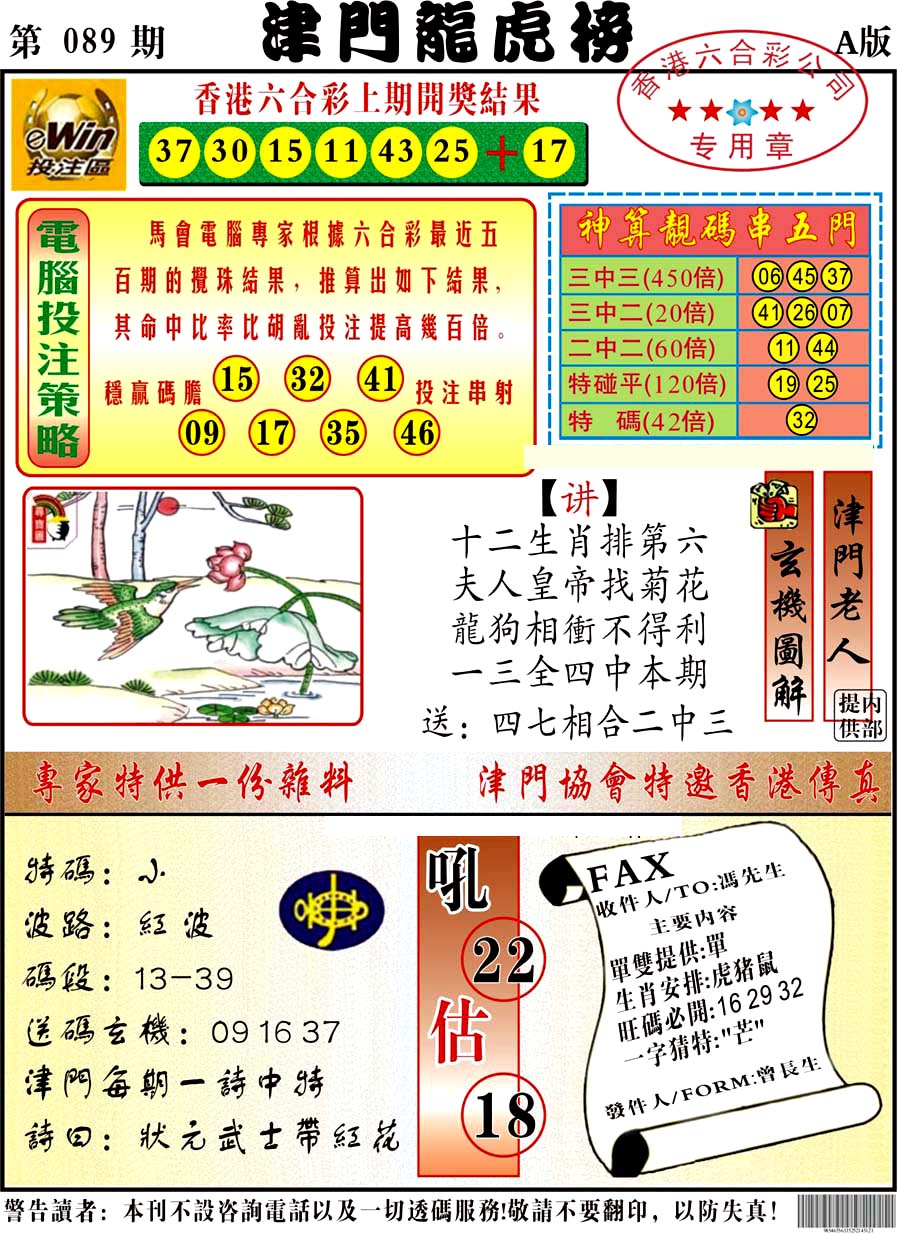 第 089 期
津門龍虎榜
A版
eWin
投注區
香港六合彩上期開獎結果
37 30 15 11 43 25 + 17
香港六合彩公司
专用章
電腦投注策略
馬會電腦專家根據六合彩最近五
百期的攪珠結果，推算出如下結果，
其命中比率比胡亂投注提高幾百倍。
穩贏碼膽 15 32 41 投注串射
09 17 35 46
神算靚碼串五門
三中三(450倍) 06 45 37
三中二(20倍) 41 26 07
二中二(60倍) 11 44
特碰平(120倍) 19 25
特 碼(42倍) 32
尋寶圖
【讲】
十二生肖排第六
夫人皇帝找菊花
龍狗相衝不得利
一三全四中本期
送：四七相合二中三
玄機圖解
津門老人
內部提供
專家特供一份雜料
津門協會特邀香港傳真
特碼：小
波路：紅波
碼段：13-39
送碼玄機：09 16 37
津門每期一詩中特
詩曰：狀元武士帶紅花
吼
22
估
18
FAX
收件人/TO:馮先生
主要内容
單雙提供:單
生肖安排:虎猪鼠
旺碼必開:16 29 32
一字猜特:"芒"
發件人/FORM:曾長生
警告讀者：本刊不設咨詢電話以及一切透碼服務!敬請不要翻印，以防失真！